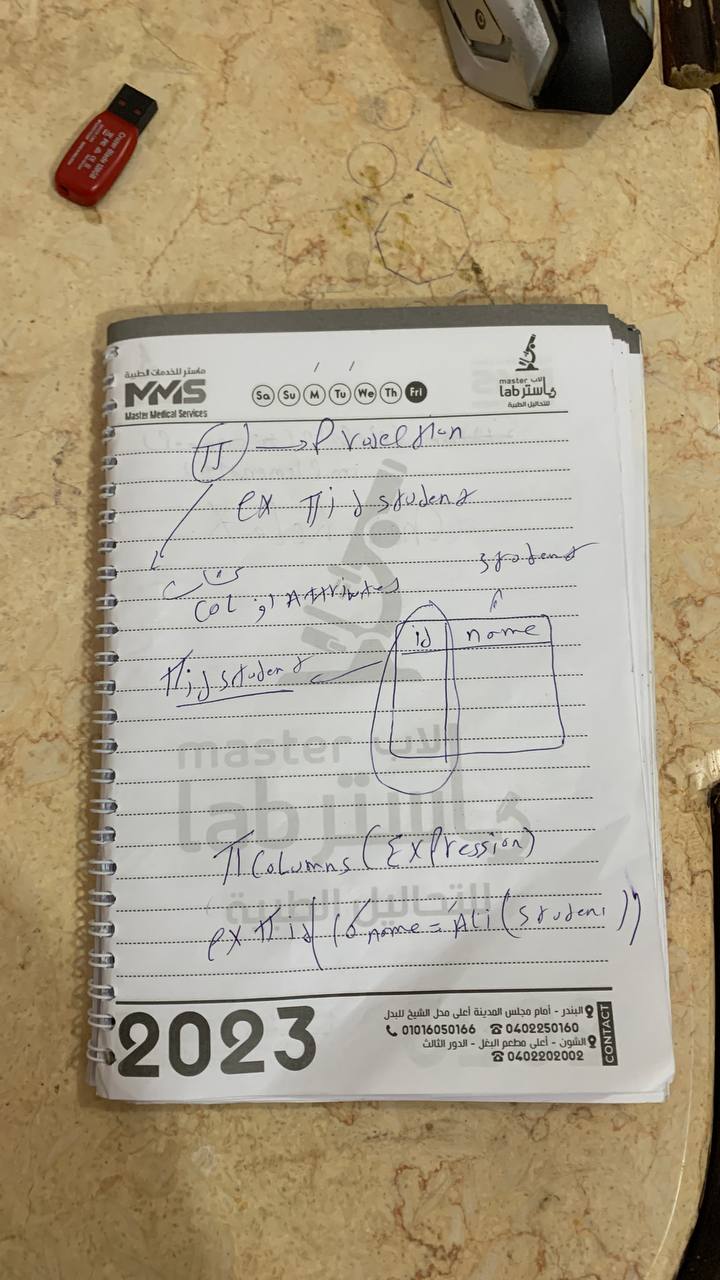 ماستر للخدمات الطبية
MMS
Master Medical Services
Sa Su M Tu We Th Fri
master الاب
lab ماستر
للتحاليل الطبية
π → Projection
ex π id student
student
Col او Attributes
id name
π id student
master الاب
lab ماستر
للتحاليل الطبية
π columns (Expression)
ex π id (σ name = Ali (student))
2023
البندر - أمام مجلس المدينة أعلى محل الشيخ للبدل
01016050166 0402250160
الشون - أعلى مطعم البغل - الدور الثالث
0402202002
CONTACT